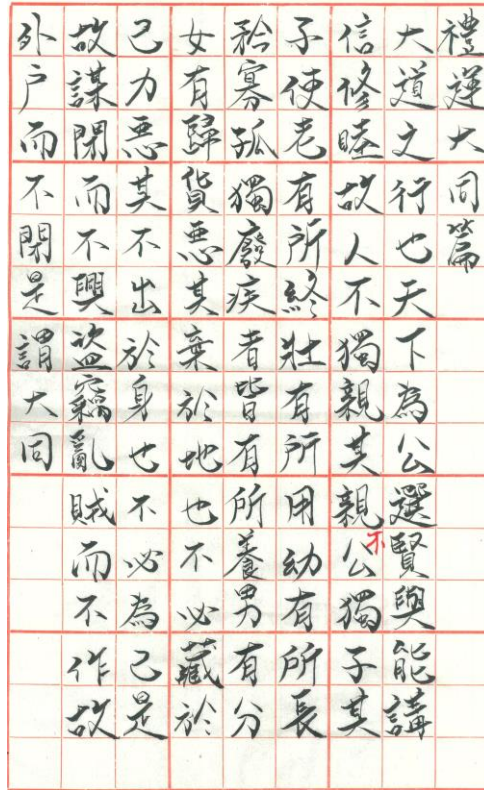 禮運大同篇
大道之行也天下為公選賢與能講
信修睦故人不獨親其親公獨子其
不
子使老有所終壯有所用幼有所長
矜寡孤獨廢疾者皆有所養男有分
女有歸貨惡其棄於地也不必藏於
己力惡其不出於身也不必為己是
故謀閉而不興盜竊亂賊而不作故
外户而不閉是謂大同